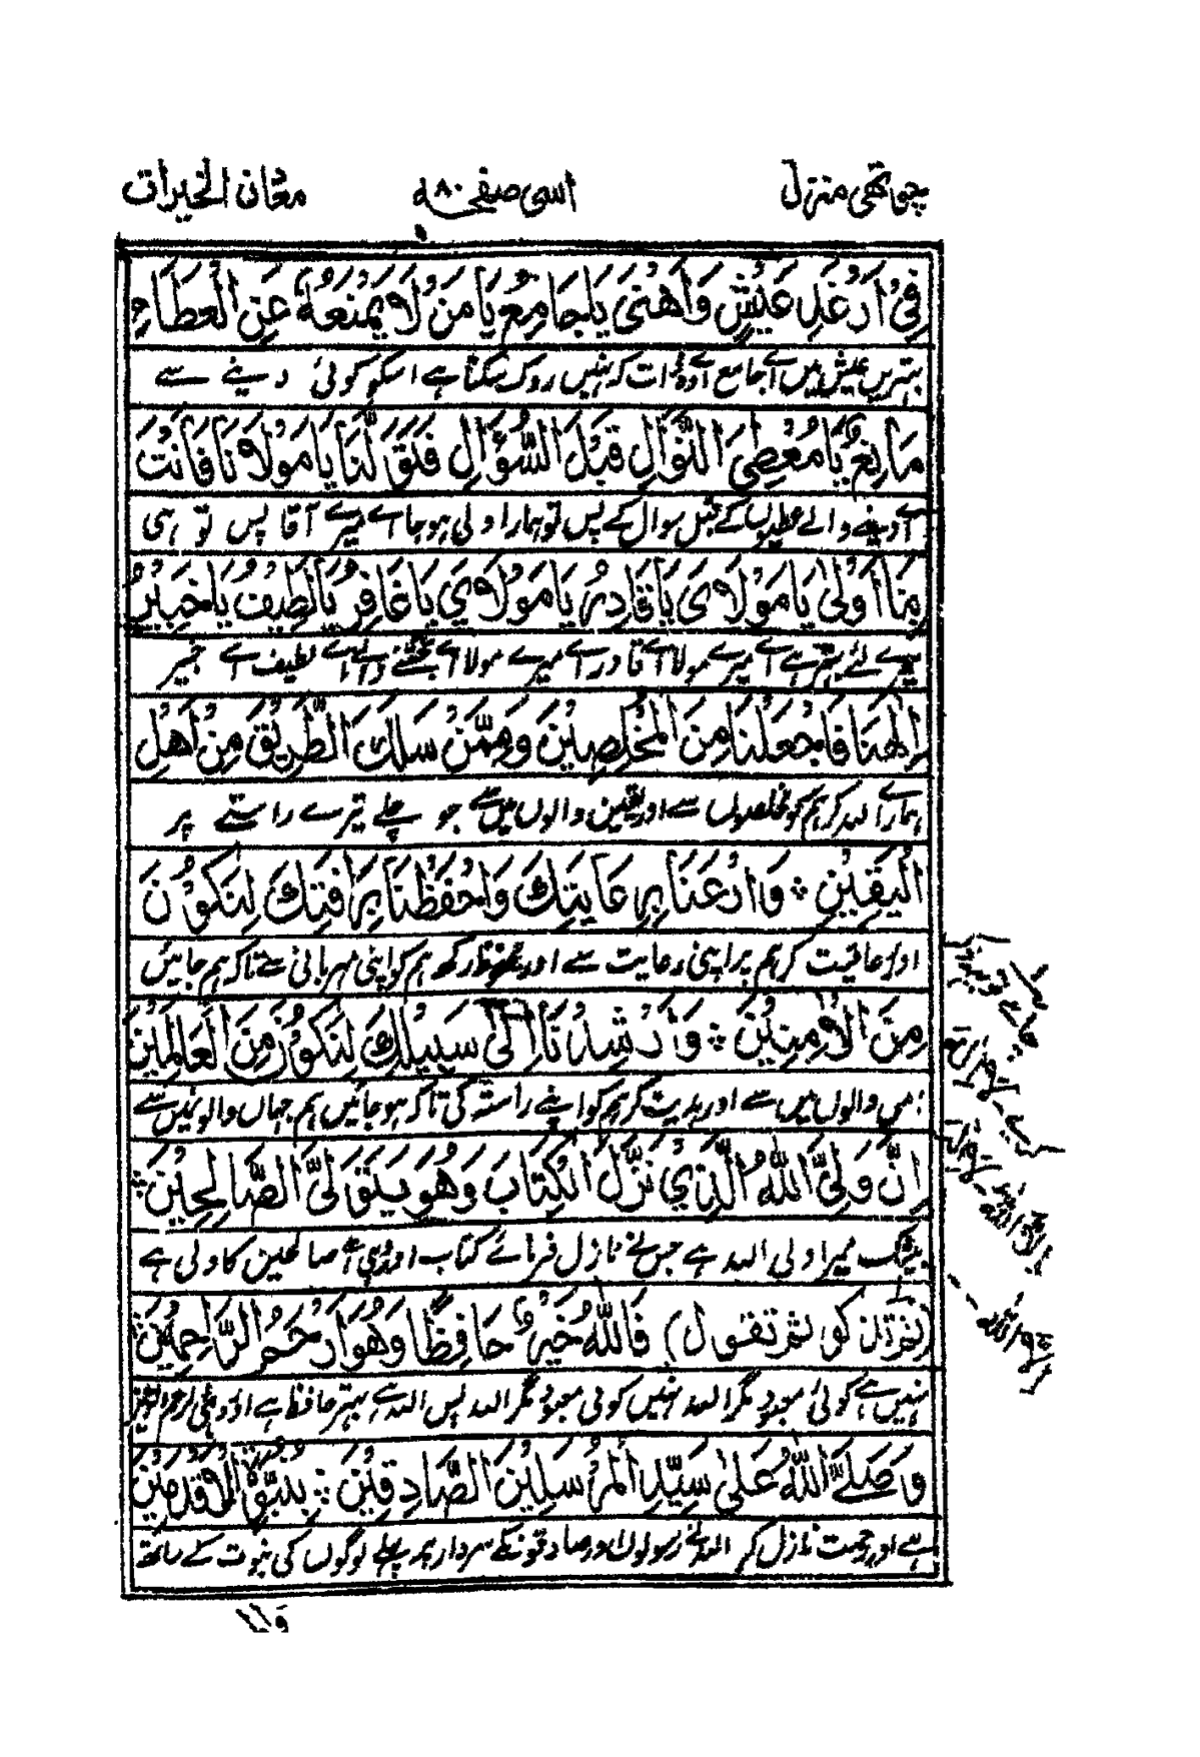 چوتھی منزل اسی صفحہ ۸۰ معان الخیرات
فِیْ اَرْغَدِ عَیْشٍ وَاَهْنٰی یَا جَامِعُ یَا مَنْ لَا یَمْنَعُهٗ عَنِ الْعَطَاءِ
بہترین عیش میں اے جامع اے وہ ذات کہ نہیں روک سکتا ہے اسکو کوئی دینے سے
مَانِعٌ یَا مُعْطِیَ النَّوَالِ قَبْلَ السُّؤَالِ فَتَوَلَّنَا یَا مَوْلَانَا فَاَنْتَ
اے دینے والے عطیوں کے قبل سوال کے پس تو ہمارا ولی ہو جا اے میرے آقا پس تو ہی
بِنَا اَوْلٰی یَا مَوْلَایَ یَا قَادِرُ یَا مَوْلَایَ یَا غَافِرُ یَا لَطِیْفُ یَا خَبِیْرُ
میرے لئے بہتر ہے اے میرے مولا اے قادر اے میرے مولا اے بخشنے والے اے لطیف اے خبیر
اِلٰهَنَا فَاجْعَلْنَا مِنَ الْمُخْلِصِیْنَ وَمِمَّنْ سَلَكَ الطَّرِیْقَ مِنْ اَهْلِ
ہمارے اللہ کر ہم کو مخلصوں سے اور یقین والوں میں سے جو چلے تیرے راستے پر
الْیَقِیْنِ ۞ وَارْعَنَا بِرِعَایَتِكَ وَاحْفَظْنَا بِرَأْفَتِكَ لِنَكُوْنَ
اور عافیت کر ہم پر اپنی رعایت سے اور محفوظ رکھ ہم کو اپنی مہربانی سے تاکہ ہم جائیں
مِنَ الْاٰمِنِیْنَ ۞ وَاَرْشِدْنَا اِلٰی سَبِیْلِكَ لِنَكُوْنَ مِنَ الْعَالَمِیْنَ
امن والوں میں سے اور ہدیت کر ہم کو اپنے راستہ کی تاکہ ہو جائیں ہم جہاں والوں میں سے
اِنَّ وَلِیِّیَ اللّٰهُ الَّذِیْ نَزَّلَ الْكِتَابَ وَهُوَ یَتَوَلَّی الصَّالِحِیْنَ ۞
بیشک میرا ولی اللہ ہے جس نے نازل فرمائے کتاب اور وہی ہے صالحین کا ولی ہے
ثم تقول) فَاللّٰهُ خَیْرٌ حَافِظًا وَهُوَ اَرْحَمُ الرَّاحِمِیْنَ ۞
نہیں ہے کوئی معبود مگر اللہ نہیں کوئی معبود مگر اللہ پس اللہ ہے بہتر حافظ ہے اور وہی
وَصَلَّی اللّٰهُ عَلٰی سَیِّدِ الْمُرْسَلِیْنَ الصَّادِقِیْنَ ۞
ہے اور رحمت نازل کر اللہ نے رسولوں اور صادقونکے سردار پر پہلے لوگوں کی نبوت کے ساتھ